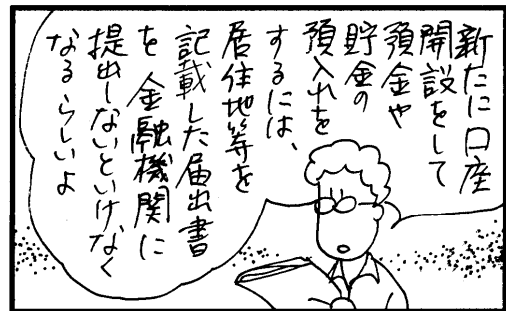 新たに口座
開設をして
預金や
貯金の
預入れを
するには、
居住地等を
記載した届出書
を金融機関に
提出しないといけなく
なるらしいよ